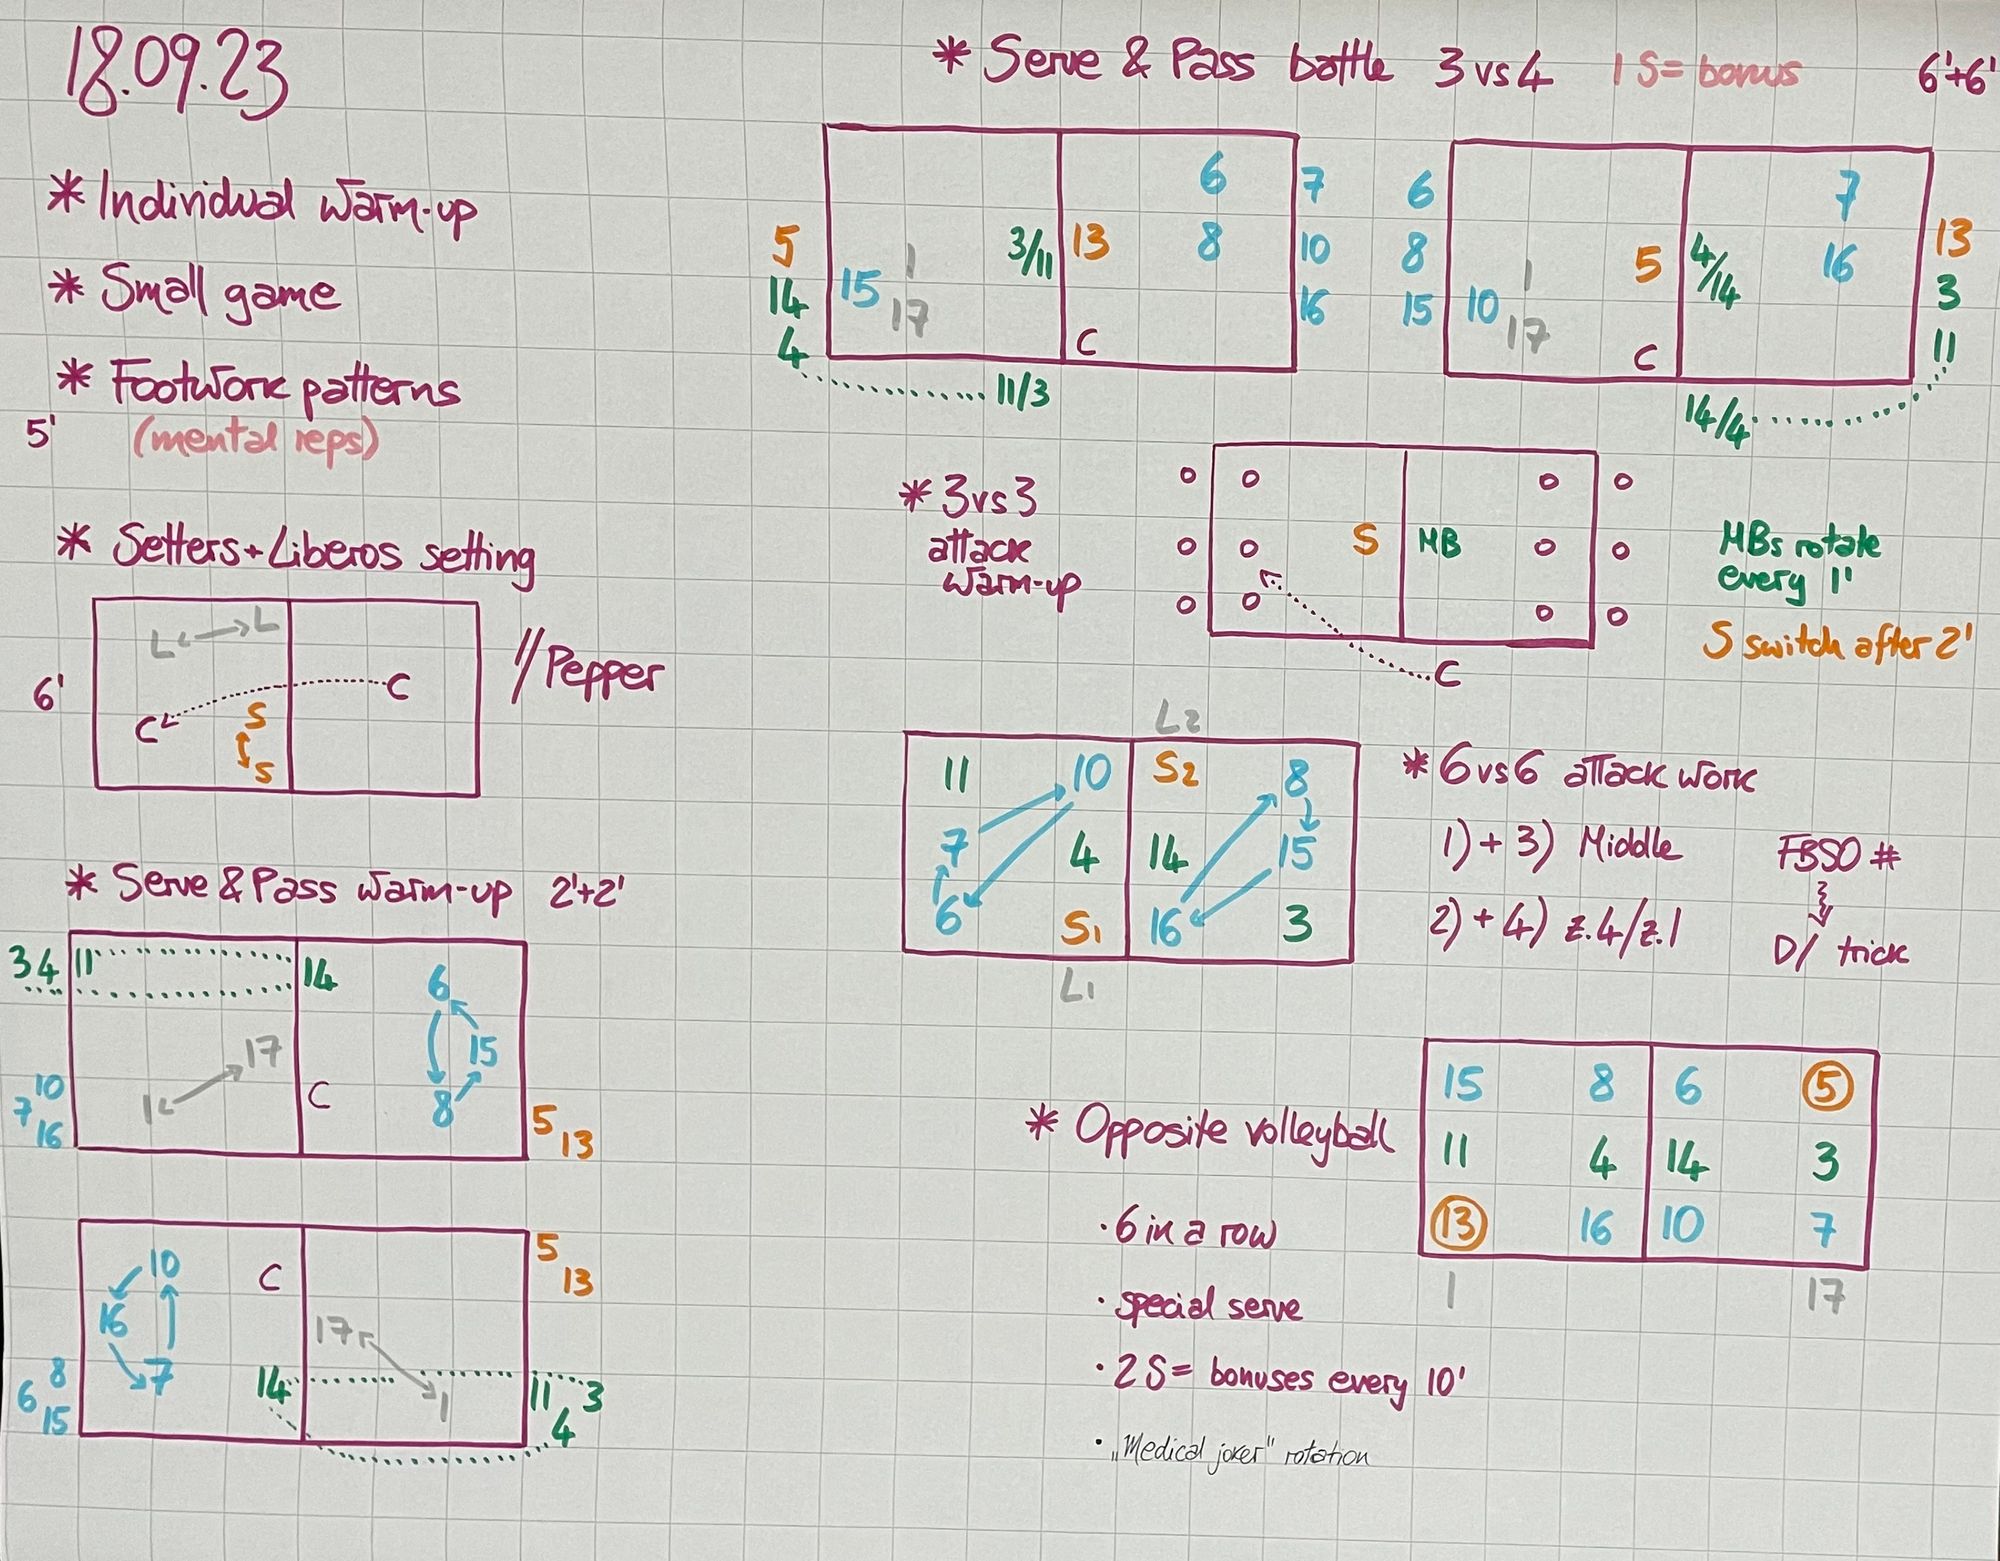 18.09.23
* Individual warm-up
* Small game
* Footwork patterns
5' (mental reps)
* Setters+Liberos setting
L L
6' C C
S
S
// Pepper
* Serve & Pass warm-up 2'+2'
3 4 11 14 6
17 15
10 1 C 8
7 5
16 13
10 C 5
13
16 17
8 7 14 1 11 3
6 4
15
* Serve & Pass battle 3 vs 4 1 S= bonus 6'+6'
6 7
5 1 3/11 13 8 10
14 15 17 16
4 C
11/3
6 7
8 1 5 4/14 16 13
15 10 17 3
C 11
14/4
* 3 vs 3
attack
warm-up
S MB
C
MBs rotate
every 1'
S switch after 2'
L2
11 10 S2 8
7 4 14 15
6 S1 16 3
L1
* 6 vs 6 attack work
1) + 3) Middle
2) + 4) z.4/z.1
FBSO #
D/ trick
* Opposite volleyball
15 8 6 5
11 4 14 3
13 16 10 7
1 17
· 6 in a row
· special serve
· 2 S= bonuses every 10'
· „Medical joker" rotation